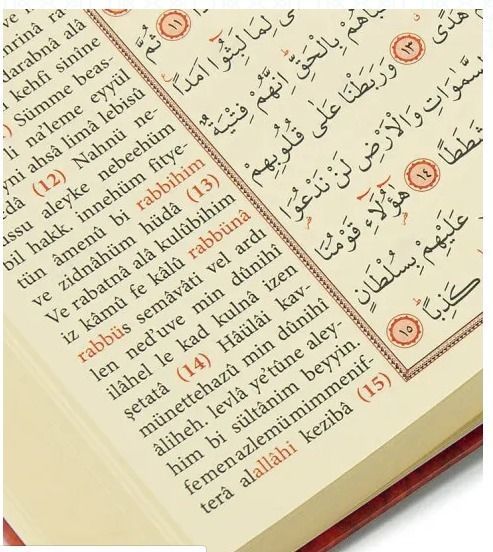 mrinâ ra-
darabnâ alâ
kehfi sinîne
Sümme beas-
li na'leme eyyül
ahsa limâ lebisû
(12) Nahnü ne-
aleyke nebeehüm
bil hakk, innehüm fitye-
tün âmenû bi rabbihim
ve zidnâhüm hüdâ (13)
Ve rabatnâ alâ kulûbihim
iz kâmû fe kâlû rabbünâ
rabbüs semâvâti vel ardı
len ned'uve min dûnihî
ilâhel le kad kulnâ izen
şetatâ (14) Hâülâi kav-
münettehazû min dûnihî
âliheh, levlâ ye'tûne aley-
him bi sültânim beyyin.
femenazlemümimmenif-
terâ alallâhi kezibâ (15)
١١ لِمَا لَبِثُوا أَمَدًا ثُمَّ
بِالْحَقِّ اِنَّهُمْ فِتْيَةٌ
هُدًى ١٣ وَرَبَطْنَا عَلٰى قُلُوبِهِمْ
وَالْاَرْضِ لَنْ نَدْعُوَا
شَطَطًا ١٤ هٰٓؤُلَٓاءِ قَوْمُنَا
عَلَيْهِمْ بِسُلْطَانٍ
كَذِبًا ١٥